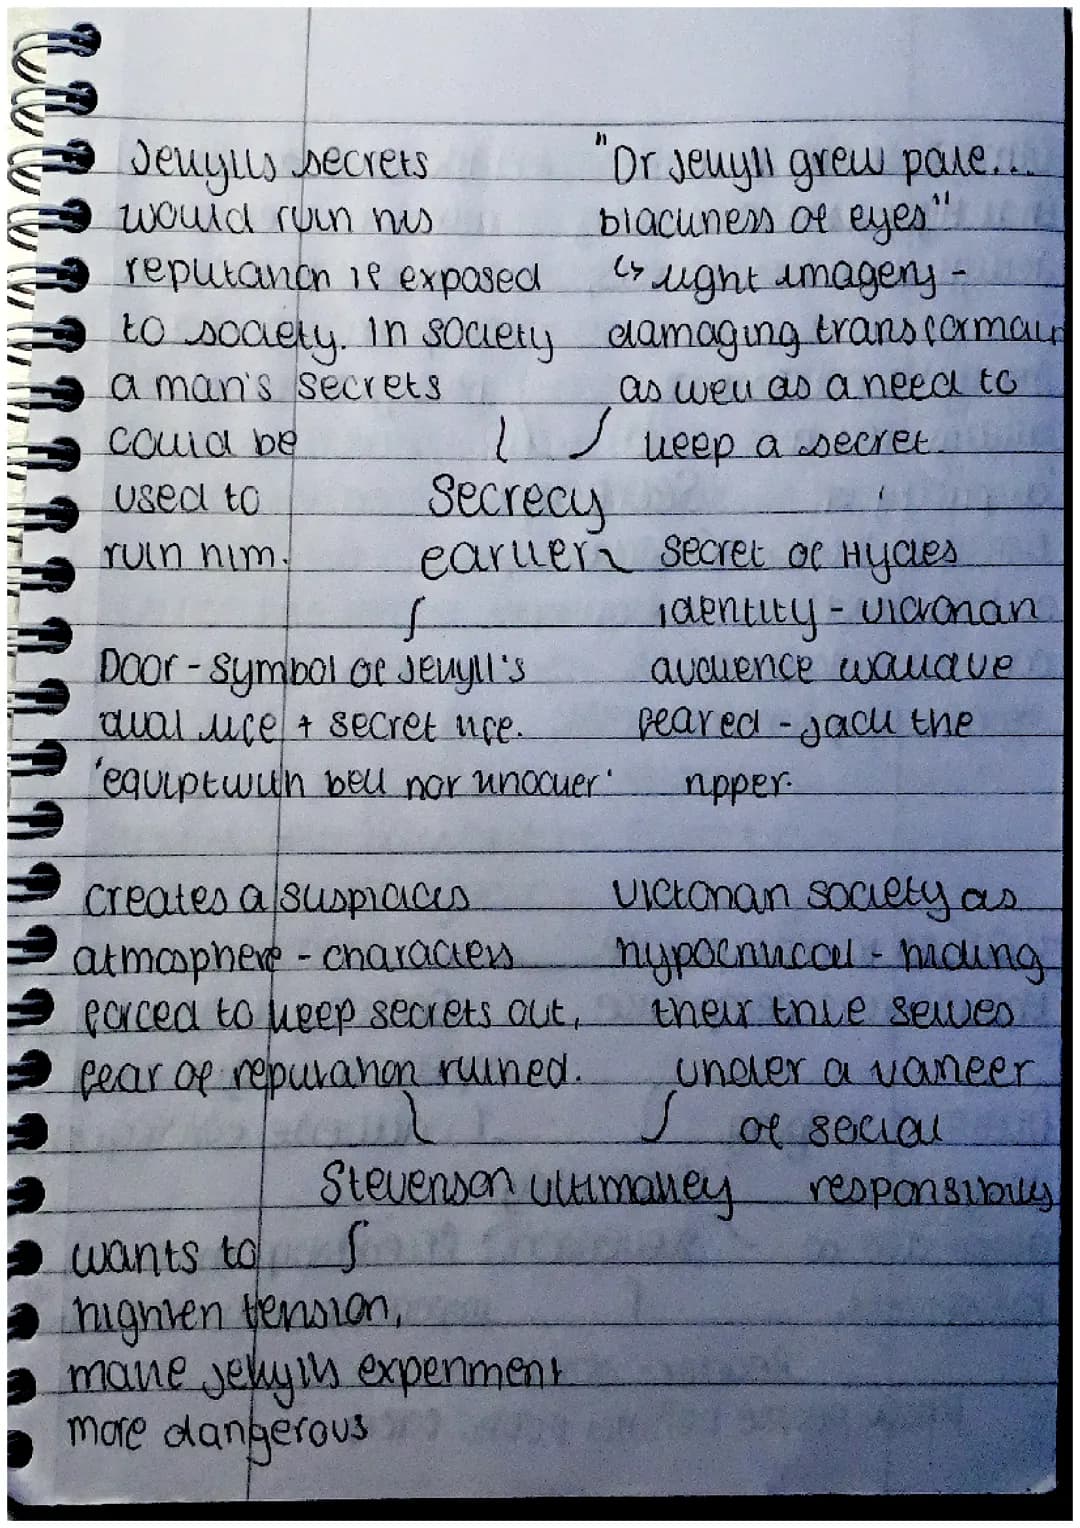 Jekylls secrets
would ruin his
reputation if exposed
to society. In society
a man's secrets
could be
used to
ruin him.
"Dr Jekyll grew pale...
blackness of eyes"
↳ light imagery -
damaging transformain
as well as a need to
keep a secret.
Secrecy
earlier
secret of Hydes
identity - victorian
audience wouldve
feared - jack the
ripper.
Door - symbol of Jekyll's
dual life + secret life.
'equipt with bell nor knocker'
creates a suspicious
atmosphere - characters
forced to keep secrets out,
fear of reputation ruined.
Victorian society as
hypocritical - hiding
their true selves
under a vaneer
of social
responsibility
Stevenson ultimatley
wants to
highten tension,
make jekylls experiment
more dangerous